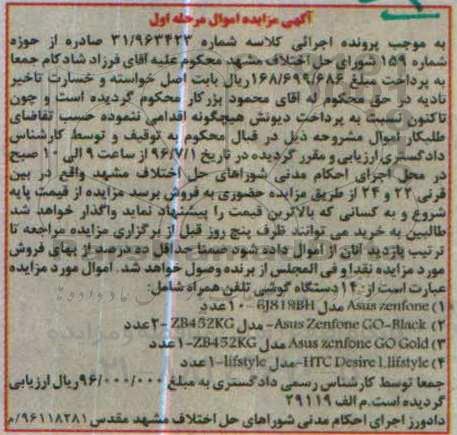 آگهی مزایده اموال مرحله اول
به موجب پرونده اجرائی کلاسه شماره ۳۱/۹۶۳۴۲۳ صادره از حوزه
شماره ۱۵۹ شورای حل اختلاف مشهد محکوم علیه آقای فرزاد شادکام جمعا
به پرداخت مبلغ ۱۶۸/۶۹۹/۶۸۶ ریال بابت اصل خواسته و خسارت تاخیر
تادیه در حق محکوم له آقای محمود بزرکار محکوم گردیده است و چون
تاکنون نسبت به پرداخت دیونش هیچگونه اقدامی ننموده حسب تقاضای
طلبکار اموال مشروحه ذیل در قبال محکوم به توقیف و توسط کارشناس
دادگستری ارزیابی و مقرر گردیده در تاریخ ۹۶/۷/۱ از ساعت ۹ الی ۱۰ صبح
در محل اجرای احکام مدنی شوراهای حل اختلاف مشهد واقع در بین
قرنی ۲۲ و ۲۴ از طریق مزایده حضوری به فروش برسد مزایده از قیمت پایه
شروع و به کسانی که بالاترین قیمت را پیشنهاد نماید واگذار خواهد شد
طالبین به خرید می توانند ظرف پنج روز قبل از برگزاری مزایده مراجعه تا
ترتیب بازدید آنان از اموال داده شود ضمنا حداقل ده درصد از بهای فروش
مورد مزایده نقدا و فی المجلس از برنده وصول خواهد شد. اموال مورد مزایده
عبارت است از: ۱۴ دستگاه گوشی تلفن همراه شامل:
۱) Asus zenfone مدل 6J818BH-۱۰عدد
۲) Asus Zenfone GO-Black- مدل ZB452KG-۲عدد
۳) Asus zenfone GO Gold-مدل ZB452KG-۱عدد
۴) HTC Desire 1 lifstyle-مدل lifstyle-۱عدد
جمعا توسط کارشناس رسمی دادگستری به مبلغ ۹۶/۰۰۰/۰۰۰ ریال ارزیابی
گردیده است. م الف ۲۹۱۱۹
دادورز اجرای احکام مدنی شوراهای حل اختلاف مشهد مقدس ۹۶۱۱۸۲۸۱/م